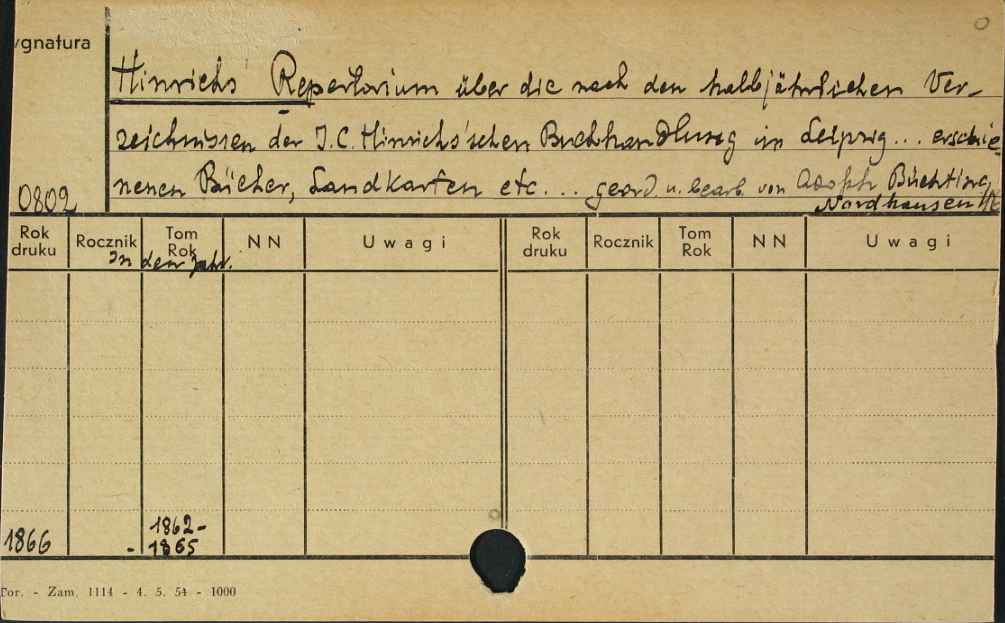 ygnatura
Hinrichs Repertorium über die nach den halbjährlichen Ver-
zeichnissen der J. C. Hinrichs'schen Buchhandlung in Leipzig... erschie-
0802 nenen Bücher, Landkarten etc... geord. u. bearb. von Adolph Büchting,
Nordhausen
Rok druku Rocznik Tom Rok N N Uwagi Rok druku Rocznik Tom Rok N N Uwagi
In den Jahr.
1862-
1866 - 1865
Tor. - Zam. 1114 - 4. 5. 54 - 1000